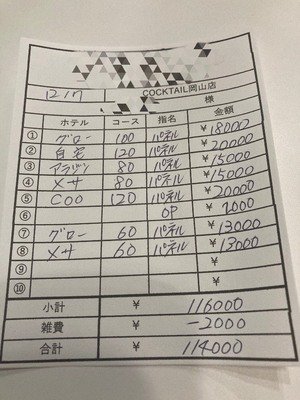 COCKTAIL岡山店
12 17 様
ホテル コース 指名 金額
① グロー 100 パネル ¥18000
② 自宅 120 パネル ¥20000
③ アラジン 80 パネル ¥15000
④ メサ 80 パネル ¥15000
⑤ COO 120 パネル ¥20000
⑥ OP ¥2000
⑦ グロー 60 パネル ¥13000
⑧ メサ 60 パネル ¥13000
⑨ ¥
⑩ ¥
小計 ¥ 116000
雑費 ¥ -2000
合計 ¥ 114000